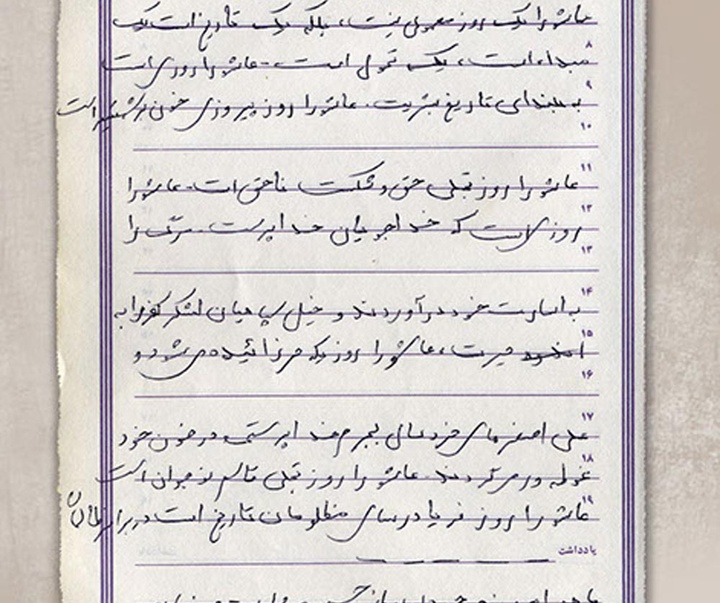 عاشورا یک روز معمولی نیست، بلکه یک تاریخ است یک
۸
مبداء است، یک تحول است. عاشورا روزی است
۹
به بلندای تاریخ بشریت. عاشورا روز پیروزی خون بر شمشیر است
۱۰
۱۱
عاشورا روز تجلی حق و شکست ناحق است. عاشورا
۱۲
روزی است که خداجویان خداپرست
۱۳
۱۴
به اسارت خود درآوردند و خیل سپاهیان لشکر کفر را به
۱۵
حیرت، عاشورا روزیکه هر زائیده می‌شود و
۱۶
۱۷
علی اصغرهای خردسال بجرم خداپرستی در خون خود
۱۸
غوطه‌ور می‌گردند. عاشورا روز تجلی قاسم نوجوان است
۱۹
عاشورا روز فریاد رسای مظلومان تاریخ است در برابر ظالمان
یادداشت